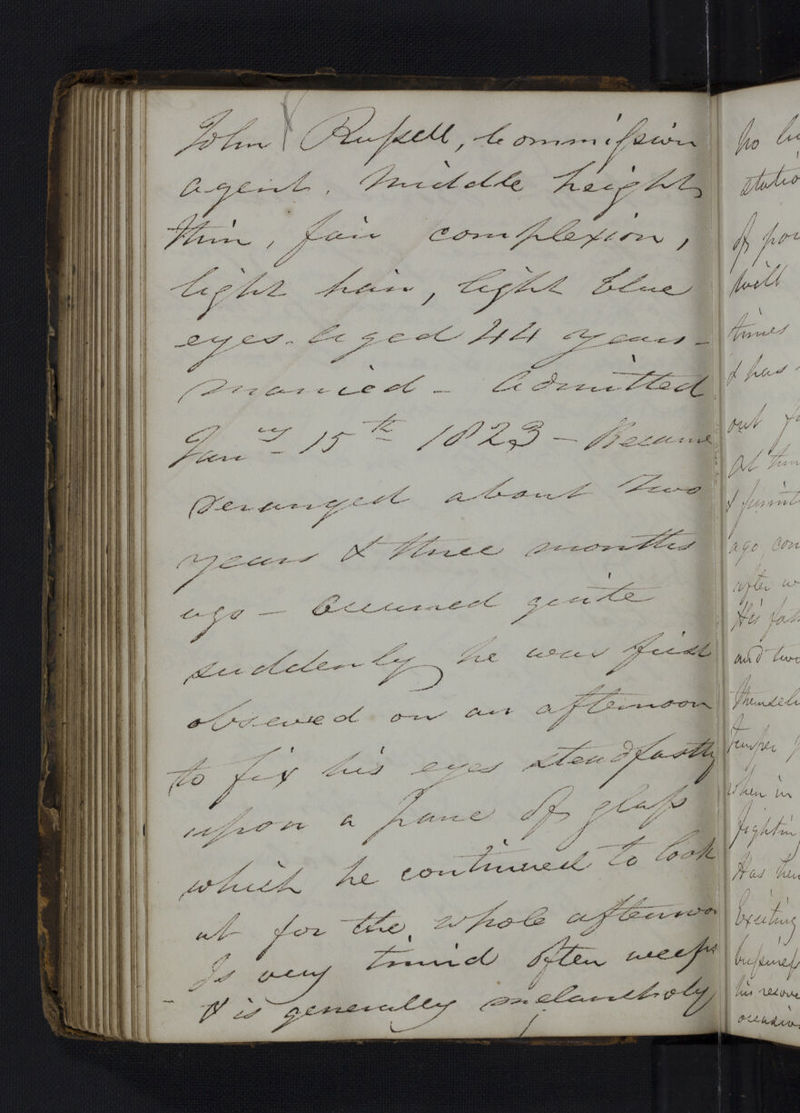 John Russell, Commission
agent. Middle height
thin, fair complexion,
light hair, light blue
eyes. Aged 44 years -
married - Admitted
Jany 15th 1823 - Became
deranged about two
years & three months
ago - Occurred quite
suddenly he was first
observed on an afternoon
to fix his eyes steadfastly
upon a pane of glass
which he continued to look
at for the whole afternoon
Is very timid often weeps
& is generally melancholy
no
of
will
times
& has
out
at
ago
after
His
and
when in
Has
Exciting
his